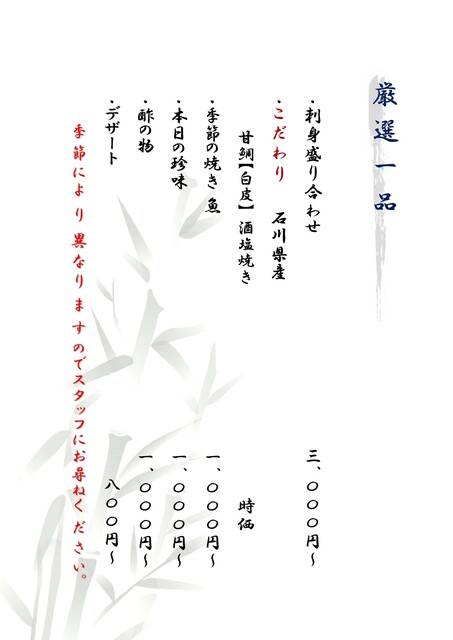 厳選一品
・刺身盛り合わせ 三、〇〇〇円～
・こだわり 石川県産
甘鯛【白皮】酒塩焼き 時価
・季節の焼き魚 一、〇〇〇円～
・本日の珍味 一、〇〇〇円～
・酢の物 一、〇〇〇円～
・デザート 八〇〇円～
季節により異なりますのでスタッフにお尋ねください。